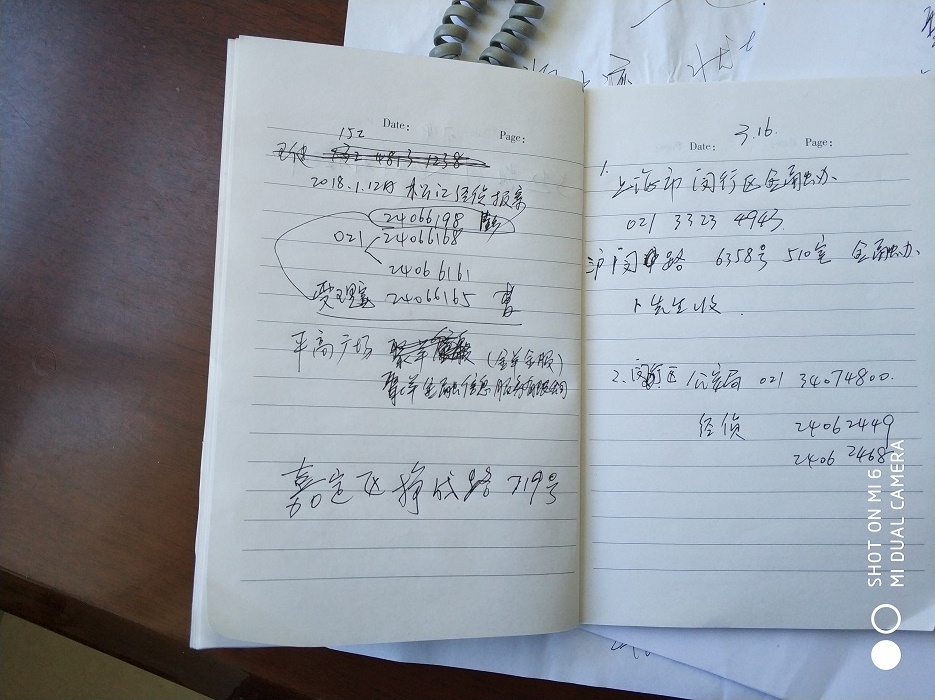 Date:
Page:
152
2018.1.12日 松江经侦报案
24066198
021 24066168
24066161
受理室 24066165 曹
平高广场 (金羊金服)
金融信息服务有限公司
嘉定区 路 719号
3.16.
Date:
Page:
1.
上海市闵行区金融办.
021 3323 4943
沪闵路 6358号 510室 金融办.
卜先生收.
2. 闵行区公安局 021 34074800.
经侦 24062449
2406 2468
SHOT ON MI 6
MI DUAL CAMERA